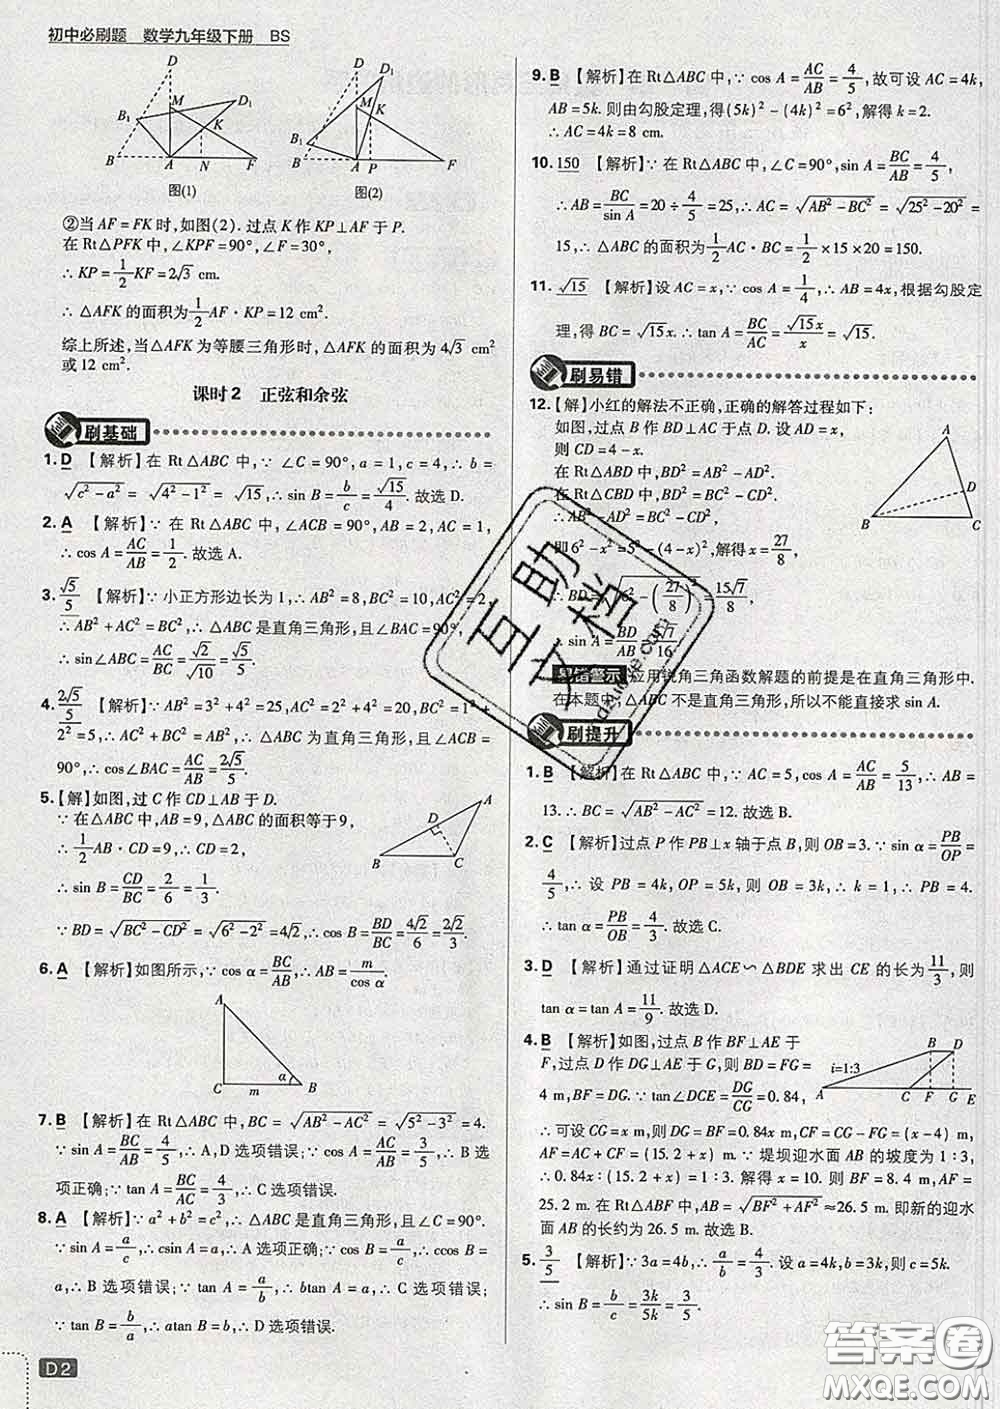 初中必刷题 数学九年级下册 BS
D
M
D1
B1
K
B
A
N
F
图(1)
D
M
D1
K
B1
B
A
P
F
图(2)
②当 AF=FK 时,如图(2). 过点 K 作 KP⊥AF 于 P.
在 Rt△PFK 中,∠KPF=90°,∠F=30°,
∴ KP=1/2 KF=2√3 cm.
∴ △AFK 的面积为 1/2 AF·KP=12 cm².
综上所述,当△AFK 为等腰三角形时,△AFK 的面积为 4√3 cm²
或 12 cm².
课时2 正弦和余弦
刷基础
1. D 【解析】在 Rt△ABC 中,∵ ∠C=90°,a=1,c=4,∴ b=
√(c²-a²)=√(4²-1²)=√15,∴ sin B=b/c=√15/4. 故选 D.
2. A 【解析】∵ 在 Rt△ABC 中,∠ACB=90°,AB=2,AC=1,
∴ cos A=AC/AB=1/2. 故选 A.
3. √5/5 【解析】∵ 小正方形边长为 1,∴ AB²=8,BC²=10,AC²=2,
∴ AB²+AC²=BC²,∴ △ABC 是直角三角形,且∠BAC=90°,
∴ sin∠ABC=AC/BC=√2/√10=√5/5.
4. 2√5/5 【解析】∵ AB²=3²+4²=25,AC²=2²+4²=20,BC²=1²+
2²=5,∴ AB²=AC²+BC²,∴ △ABC 为直角三角形,且∠ACB=
90°,∴ cos∠BAC=AC/AB=2√5/5.
5. 【解】如图,过 C 作 CD⊥AB 于 D.
∵ 在△ABC 中,AB=9,△ABC 的面积等于 9,
∴ 1/2 AB·CD=9,∴ CD=2,
∴ sin B=CD/BC=2/6=1/3.
A
D
B
C
∵ BD=√(BC²-CD²)=√(6²-2²)=4√2,∴ cos B=BD/BC=4√2/6=2√2/3.
6. A 【解析】如图所示,∵ cos α=BC/AB,∴ AB=m/cos α.
A
C
m
α
B
7. B 【解析】在 Rt△ABC 中,BC=√(AB²-AC²)=√(5²-3²)=4.
∵ sin A=BC/AB=4/5,∴ A,D 选项错误;∵ cos A=AC/AB=3/5,∴ B 选
项正确;∵ tan A=BC/AC=4/3,∴ C 选项错误.
8. A 【解析】∵ a²+b²=c²,∴ △ABC 是直角三角形,且∠C=90°.
∵ sin A=a/c,∴ csin A=a,∴ A 选项正确;∵ cos B=a/c,∴ ccos B=
a,∴ B 选项错误;∵ tan A=a/b,∴ btan A=a,∴ C 选项错误;
∵ tan B=b/a,∴ atan B=b,∴ D 选项错误.
D2
9. B 【解析】在 Rt△ABC 中,∵ cos A=AC/AB=4/5,故可设 AC=4k,
AB=5k. 则由勾股定理,得(5k)²-(4k)²=6²,解得 k=2.
∴ AC=4k=8 cm.
10. 150 【解析】∵ 在 Rt△ABC 中,∠C=90°,sin A=BC/AB=4/5,
∴ AB=BC/sin A=20÷4/5=25,∴ AC=√(AB²-BC²)=√(25²-20²)=
15,∴ △ABC 的面积为 1/2 AC·BC=1/2×15×20=150.
11. √15 【解析】设 AC=x,∵ cos A=1/4,∴ AB=4x,根据勾股定
理,得 BC=√15x. ∴ tan A=BC/AC=√15x/x=√15.
刷易错
12. 【解】小红的解法不正确,正确的解答过程如下:
如图,过点 B 作 BD⊥AC 于点 D. 设 AD=x,
则 CD=4-x.
在 Rt△ABD 中,BD²=AB²-AD²,
在 Rt△CBD 中,BD²=BC²-CD²,
∴ AB²-AD²=BC²-CD²,
即 6²-x²=5²-(4-x)²,解得 x=27/8,
∴ BD=√(6²-(27/8)²)=15√7/8,
∴ sin A=BD/AB=5√7/16.
A
D
B
C
易错警示 应用锐角三角函数解题的前提是在直角三角形中.
在本题中,△ABC 不是直角三角形,所以不能直接求 sin A.
刷提升
1. B 【解析】在 Rt△ABC 中,∵ AC=5,cos A=AC/AB=5/13,∴ AB=
13. ∴ BC=√(AB²-AC²)=12. 故选 B.
2. C 【解析】过点 P 作 PB⊥x 轴于点 B,则 OB=3. ∵ sin α=PB/OP=
4/5,∴ 设 PB=4k,OP=5k,则 OB=3k,∴ k=1,∴ PB=4,
tan α=PB/OB=4/3. 故选 C.
3. D 【解析】通过证明△ACE∽△BDE 求出 CE 的长为 11/3,则
tan α=tan A=11/9. 故选 D.
4. B 【解析】如图,过点 B 作 BF⊥AE 于
F,过点 D 作 DG⊥AE 于 G,则 BD=FG=
4 m,BF=DG. ∵ tan∠DCE=DG/CG=0.84,
i=1:3
B
D
A
C
F
G
E
∴ 可设 CG=x m,则 DG=BF=0.84x m,∴ CF=CG-FG=(x-4) m,
AF=AC+CF=(15.2+x) m. ∵ 堤坝迎水面 AB 的坡度为 1∶3,
∴ 0.84x∶(15.2+x)=1∶3,解得 x=10. 则 BF=8.4 m,AF=
25.2 m. ∴ 在 Rt△ABF 中,AB=√(BF²+AF²)≈26.5 m. 即新的迎水
面 AB 的长约为 26.5 m. 故选 B.
5. 3/5 【解析】∵ 3a=4b,∴ a/b=4/3. 设 a=4k,b=3k,则 c=5k.
∴ sin B=b/c=3k/5k=3/5.
互助文档
答案圈
MXQE.COM